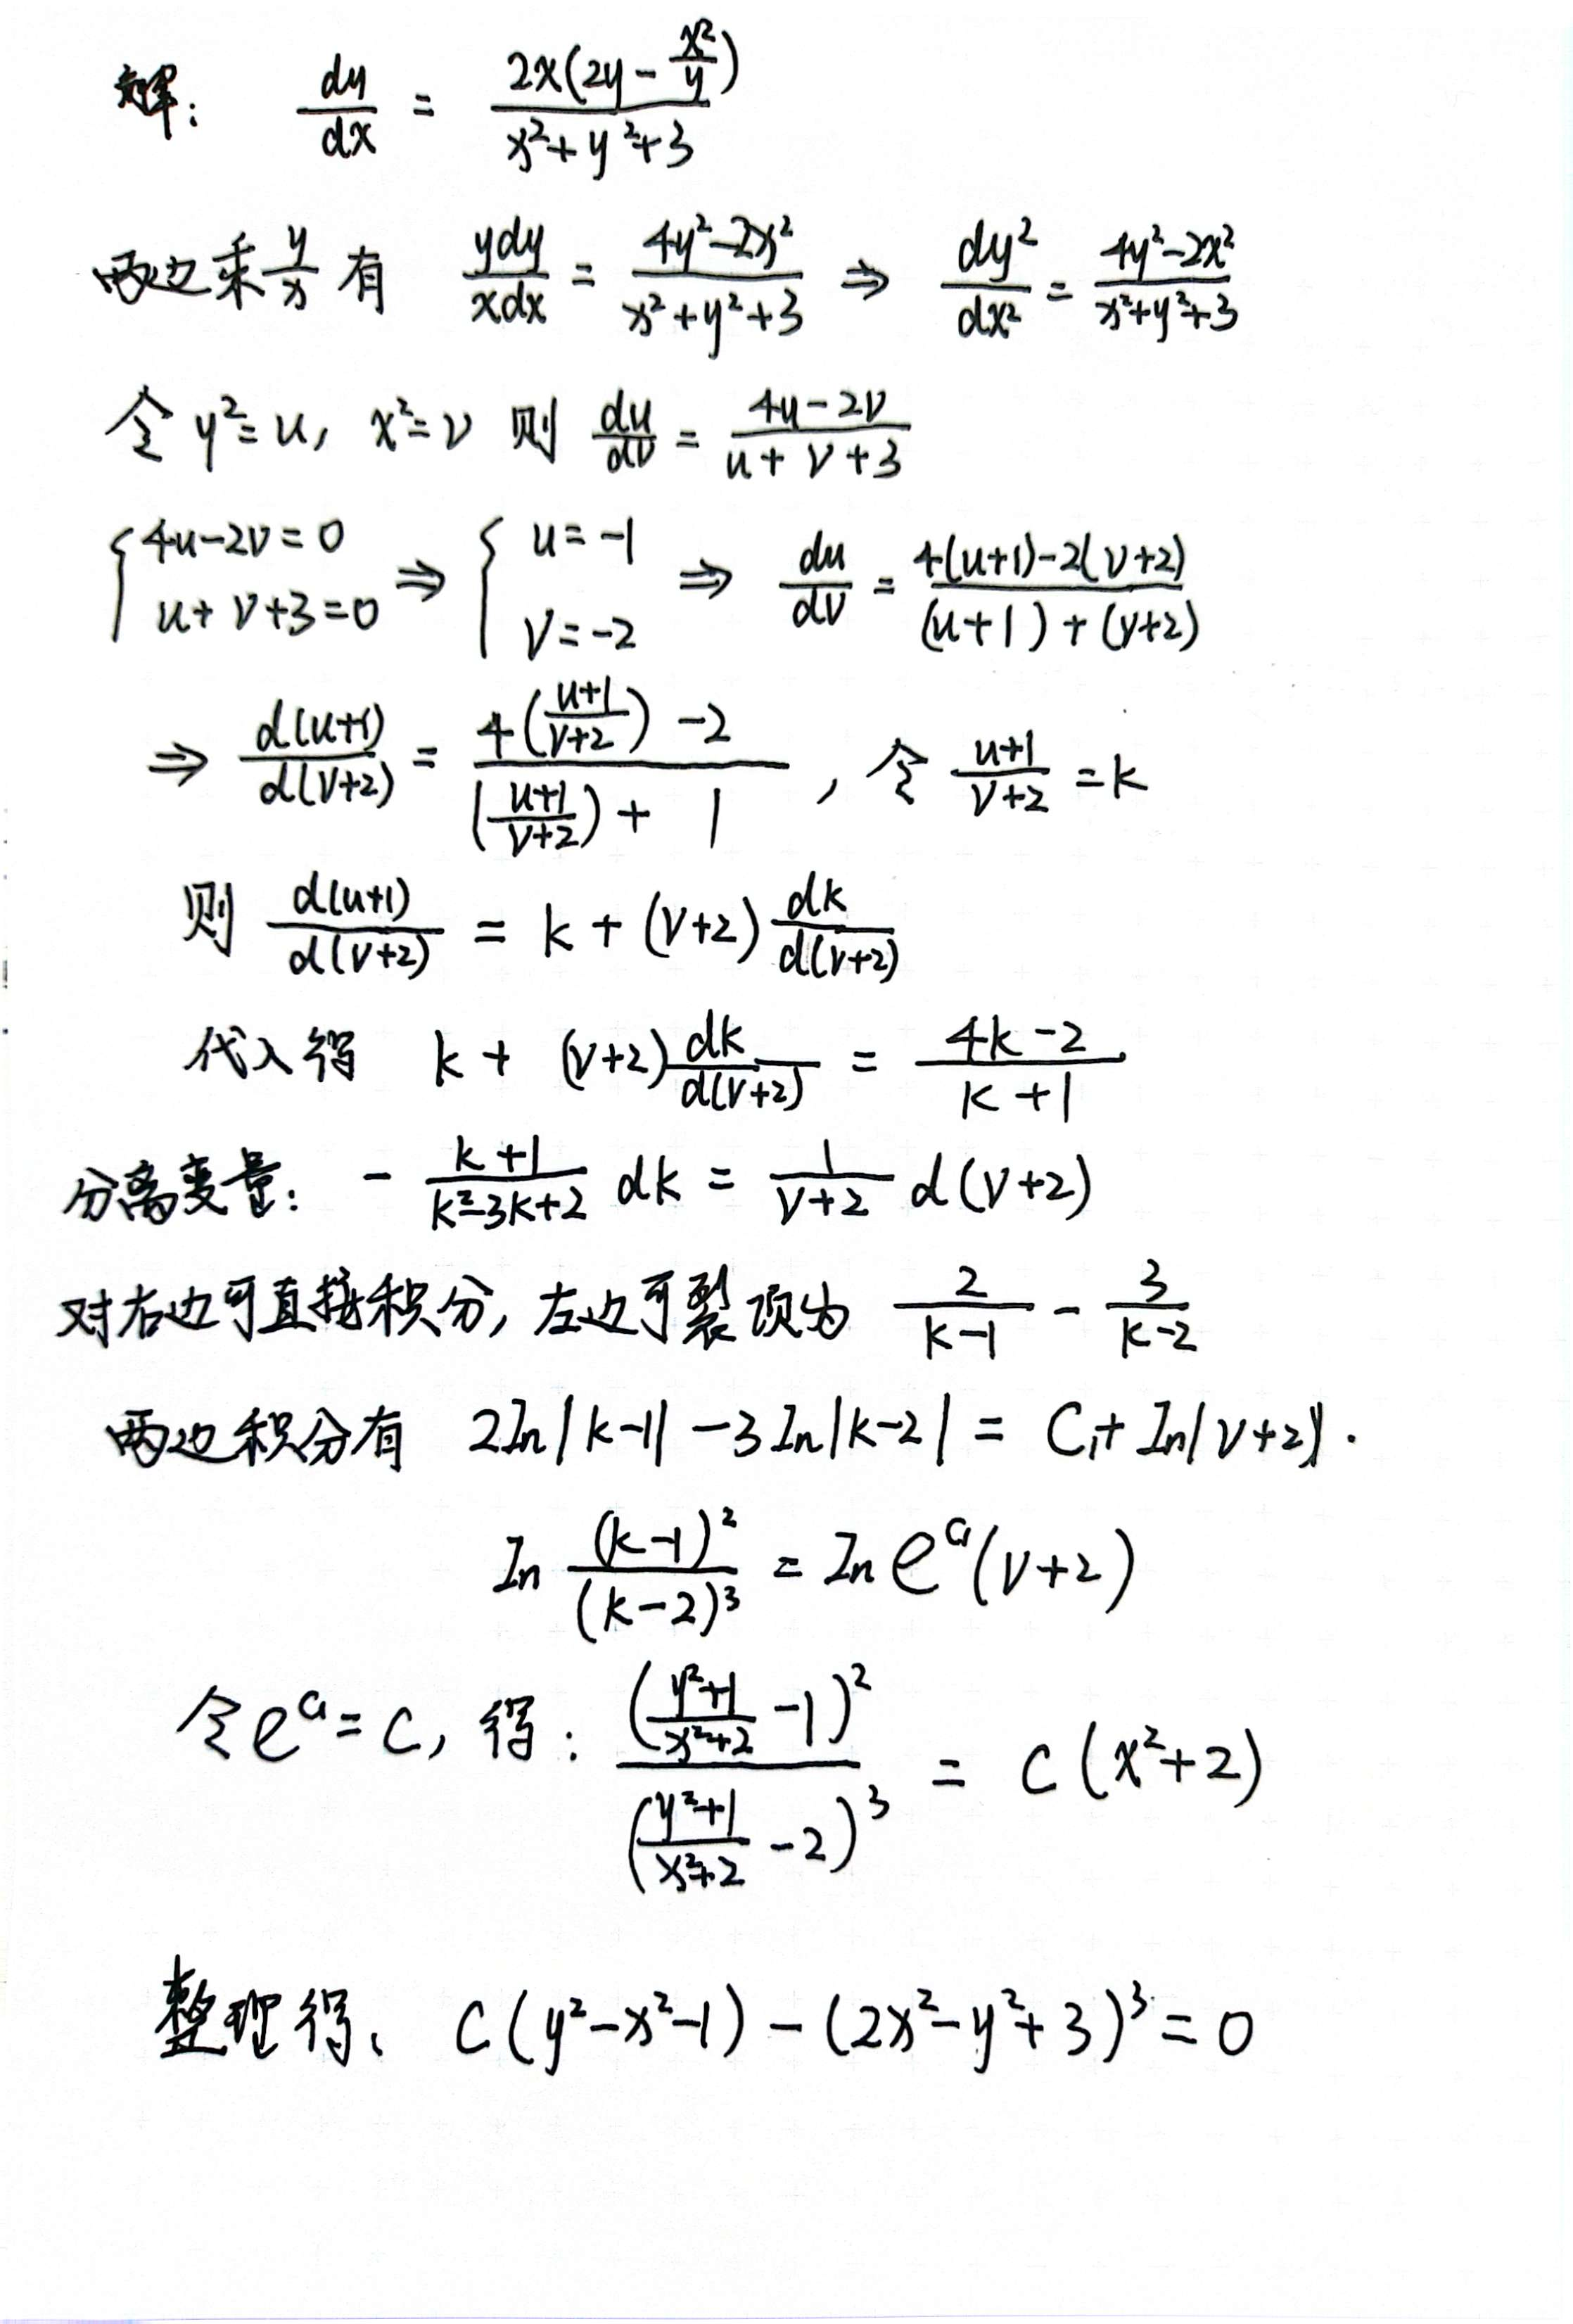 解: dy/dx = 2x(2y - x²/y) / (x²+y²+3)
两边乘 y/x 有 ydy/xdx = (4y²-2x²)/(x²+y²+3) ⇒ dy²/dx² = (4y²-2x²)/(x²+y²+3)
令 y²=u, x²=v 则 du/dv = (4u-2v)/(u+v+3)
{4u-2v=0, u+v+3=0 ⇒ {u=-1, v=-2 ⇒ du/dv = (4(u+1)-2(v+2))/((u+1)+(v+2))
⇒ d(u+1)/d(v+2) = (4((u+1)/(v+2))-2)/(((u+1)/(v+2))+1), 令 (u+1)/(v+2) = k
则 d(u+1)/d(v+2) = k + (v+2) dk/d(v+2)
代入得 k + (v+2) dk/d(v+2) = (4k-2)/(k+1)
分离变量: - (k+1)/(k²-3k+2) dk = 1/(v+2) d(v+2)
对右边可直接积分, 左边可裂项为 2/(k-1) - 3/(k-2)
两边积分有 2ln|k-1| - 3ln|k-2| = C₁ + ln|v+2|.
ln (k-1)²/(k-2)³ = ln e^C₁(v+2)
令 e^C₁ = C, 得: ((y²+1)/(x²+2) - 1)² / ((y²+1)/(x²+2) - 2)³ = C(x²+2)
整理得、 C(y²-x²-1) - (2x²-y²+3)³ = 0